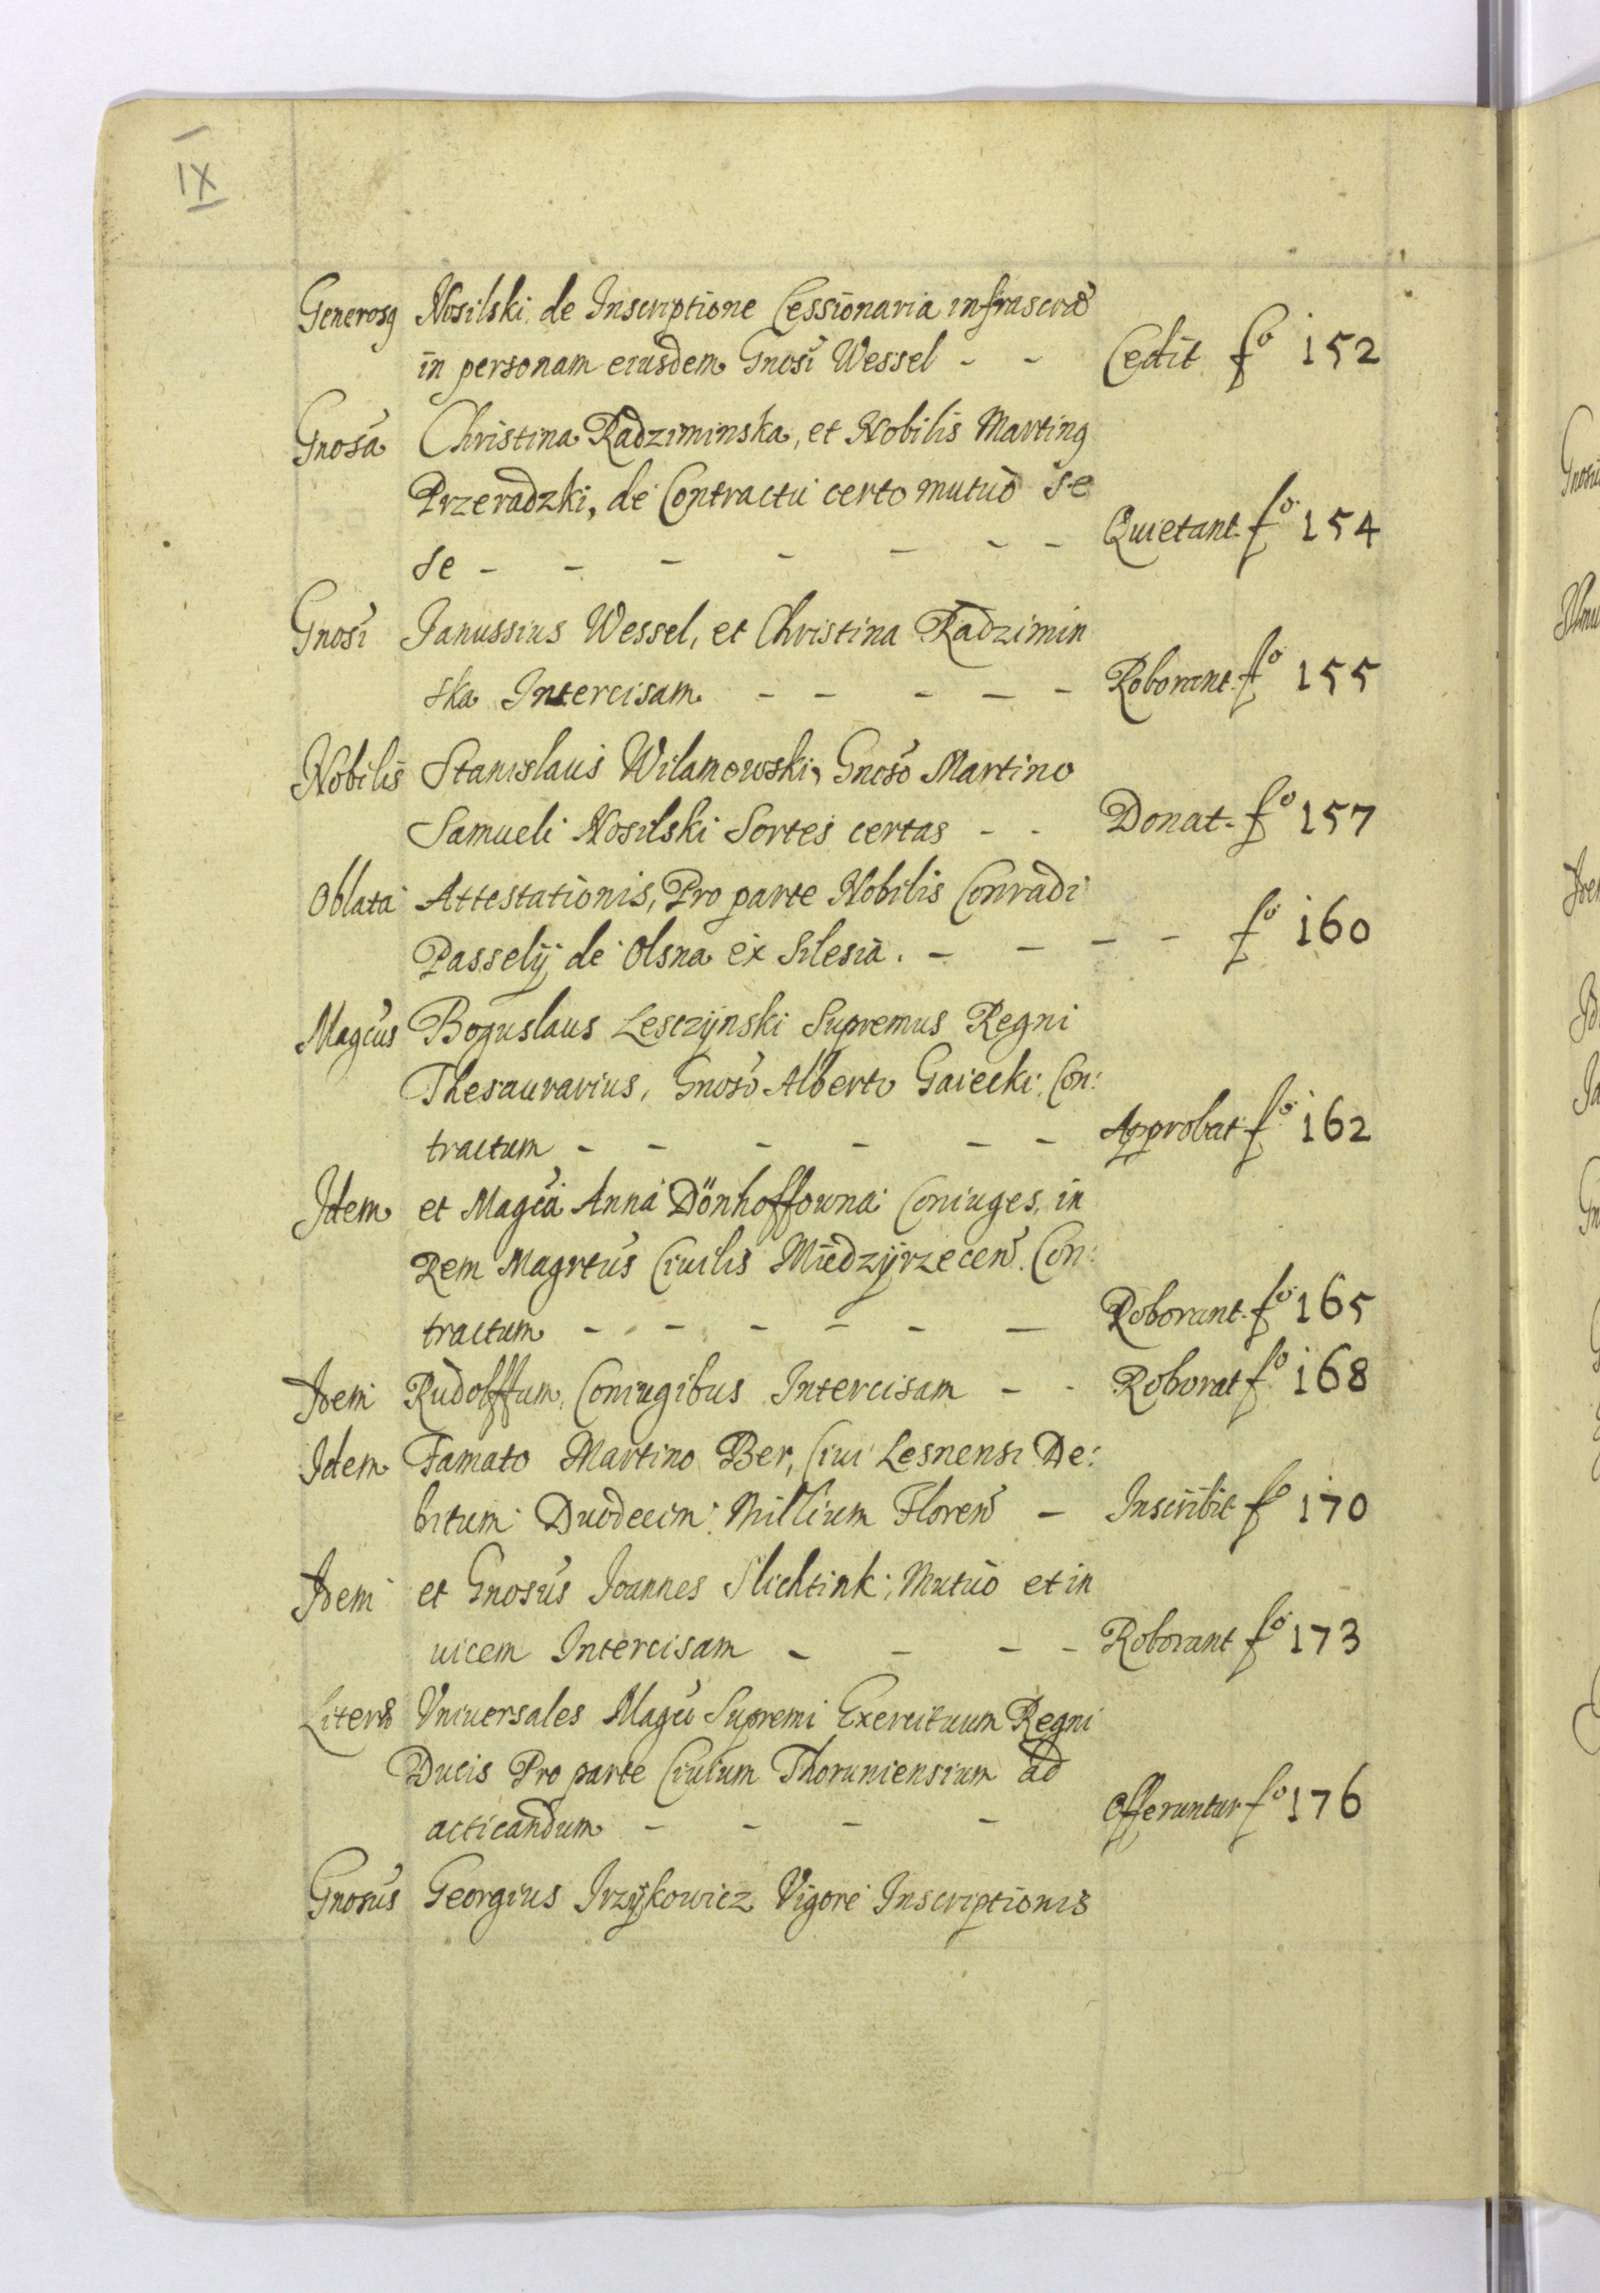 IX
Generosꝰ Nosilski de Inscriptione Cessionaria infrascrõ
in personam eiusdem Gnosi Wessel - - Cedit fº 152
Gnosa Christina Radziminska, et Nobilis Martinꝰ
Przeradzki, de Contractu certo mutuo se
se - - - - - - Quietant fº 154
Gnosi Ianussius Wessel, et Christina Radzimin
ska Intercisam - - - - - Roborant fº 155
Nobilis Stanislaus Wilamowski, Gnoso Martino
Samueli Nosilski Sortes certas - - Donat fº 157
Oblata Attestationis, Pro parte Nobilis Conradi
Passelij de Olsna ex Silesia. - - - - fº 160
Magcus Boguslaus Lesczynski Supremus Regni
Thesaurarius, Gnoso Alberto Gaiecki Con:
tractum - - - - - - Approbat fº 162
Idem et Magca Anna Dönhoffowna Coniuges, in
Rem Magrtus Ciuilis Miedzyrzecen. Con:
tractum - - - - - - Roborant fº 165
Idem Rudolffum, Coniugibus Intercisam - - Roborat fº 168
Idem Famato Martino Ber, Ciui Lesnensi De:
bitum Duodecim Millium Floren - Inscribit fº 170
Idem et Gnosus Joannes Slichtink, Mutuo et in
uicem Intercisam - - - - Roborant fº 173
Literæ Vniuersales Magci Supremi Exercituum Regni
Ducis Pro parte Ciuium Thoruniensium ad
acticandum - - - - Offeruntur fº 176
Gnosus Georgius Irzykowicz Vigore Inscriptionis